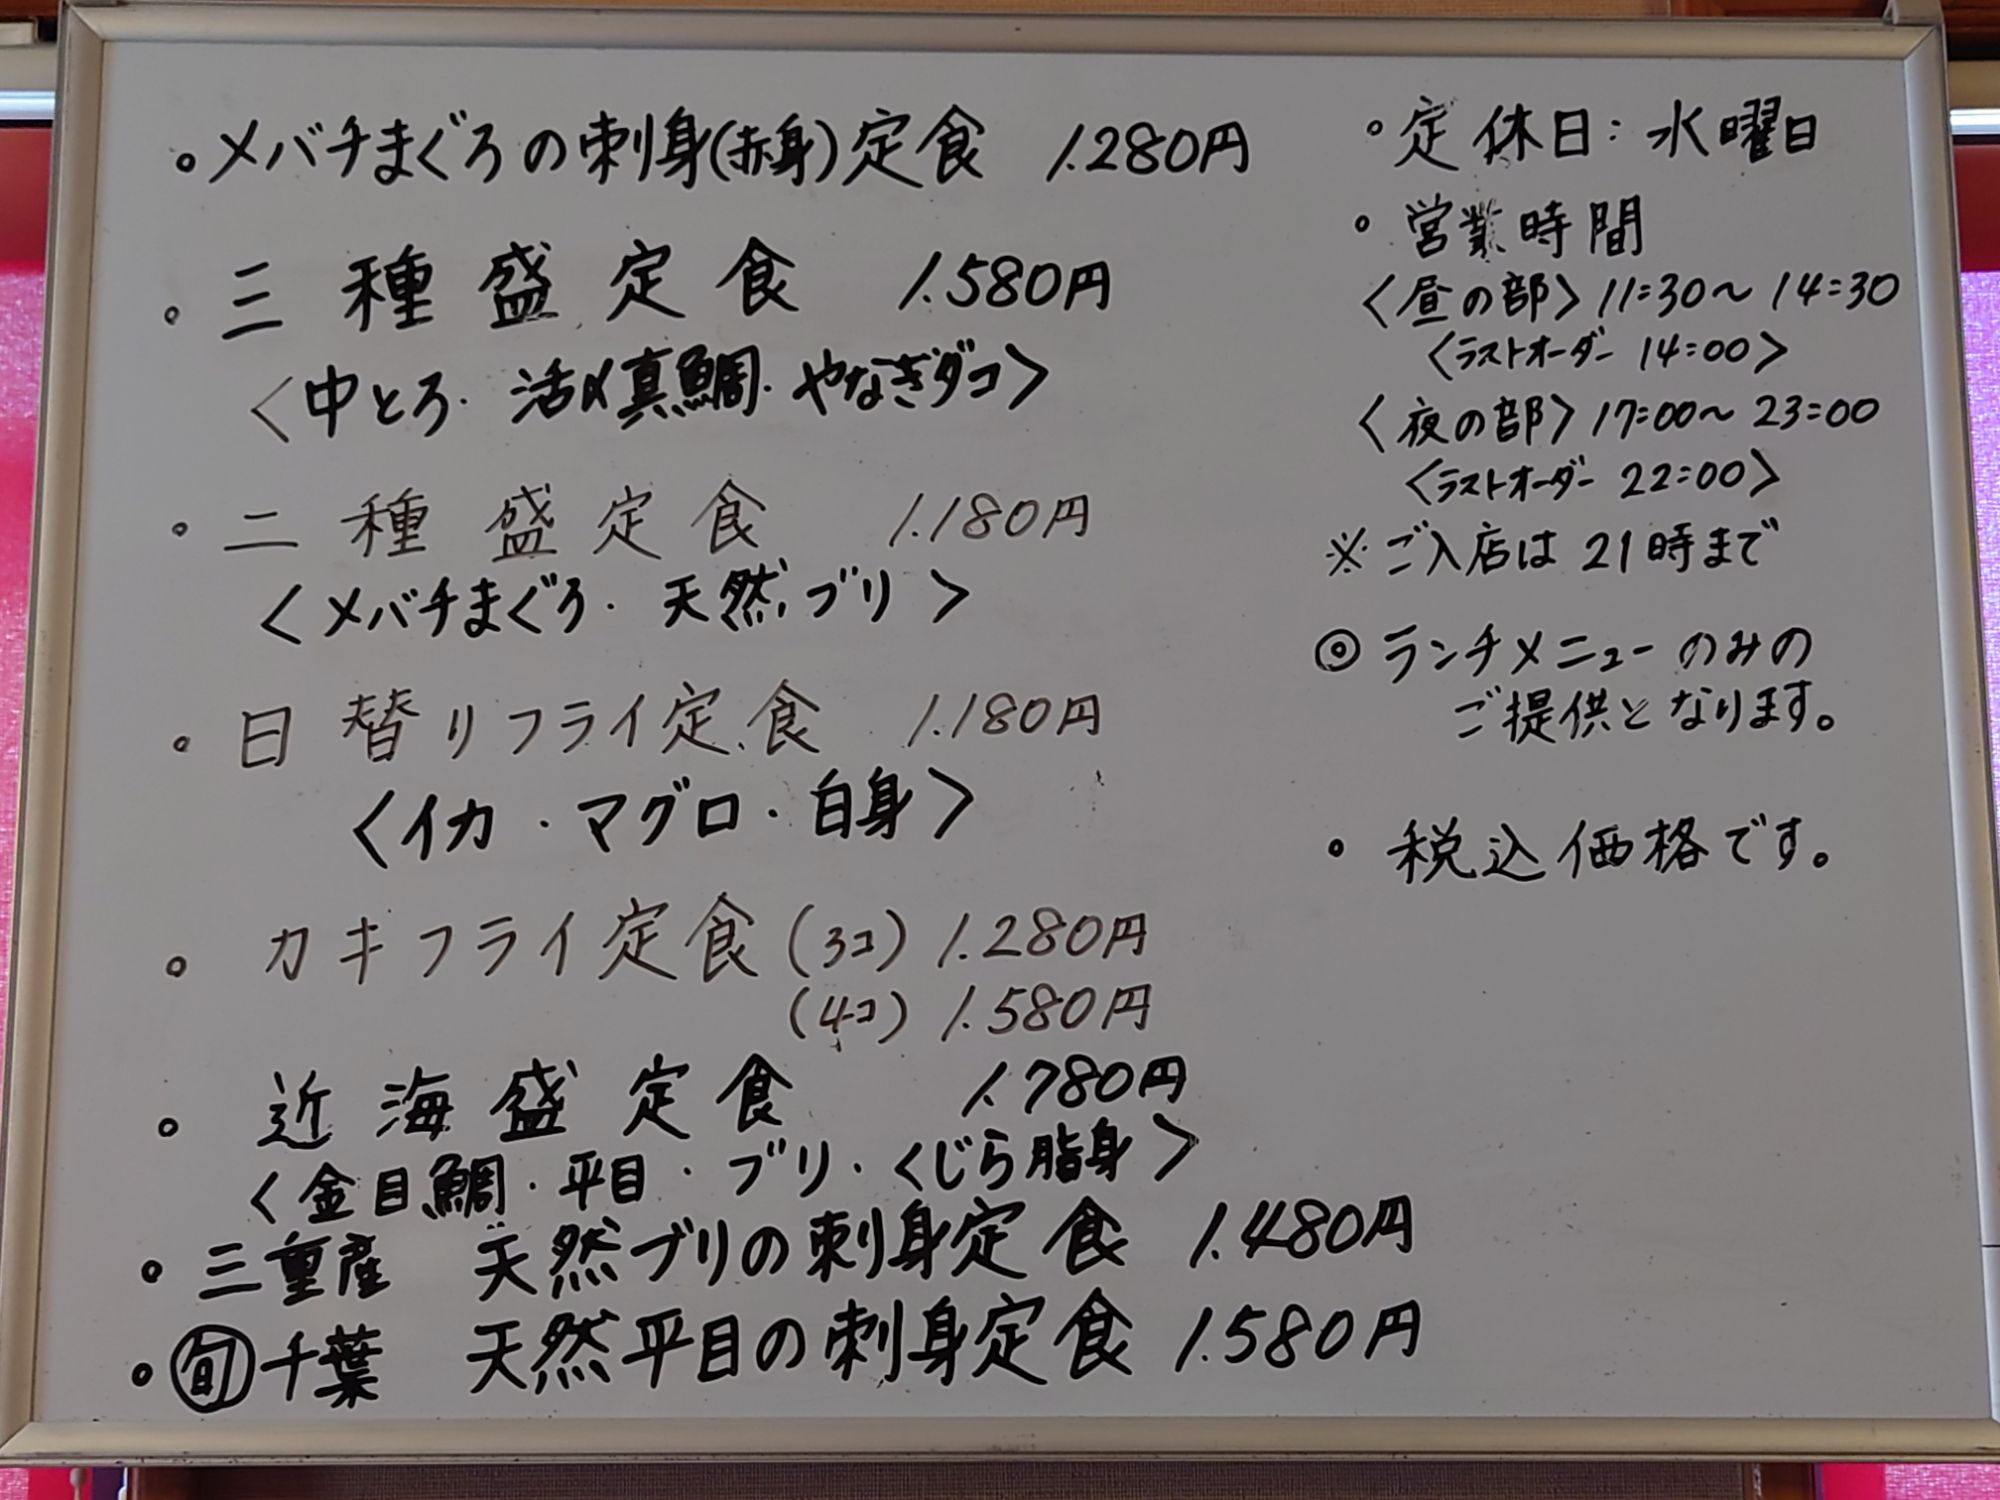 ・メバチまぐろの刺身(赤身)定食 1.280円
・三種盛定食 1.580円
〈中とろ・活〆真鯛・やなぎダコ〉
・二種盛定食 1.180円
〈メバチまぐろ・天然ブリ〉
・日替りフライ定食 1.180円
〈イカ・マグロ・白身〉
・カキフライ定食(3コ) 1.280円
(4コ) 1.580円
・近海盛定食 1.780円
〈金目鯛・平目・ブリ・くじら脂身〉
・三重産 天然ブリの刺身定食 1.480円
・㊬千葉 天然平目の刺身定食 1.580円
・定休日:水曜日
・営業時間
〈昼の部〉11:30~14:30
〈ラストオーダー 14:00〉
〈夜の部〉17:00~23:00
〈ラストオーダー 22:00〉
※ご入店は21時まで
◎ランチメニューのみの
ご提供となります。
・税込価格です。